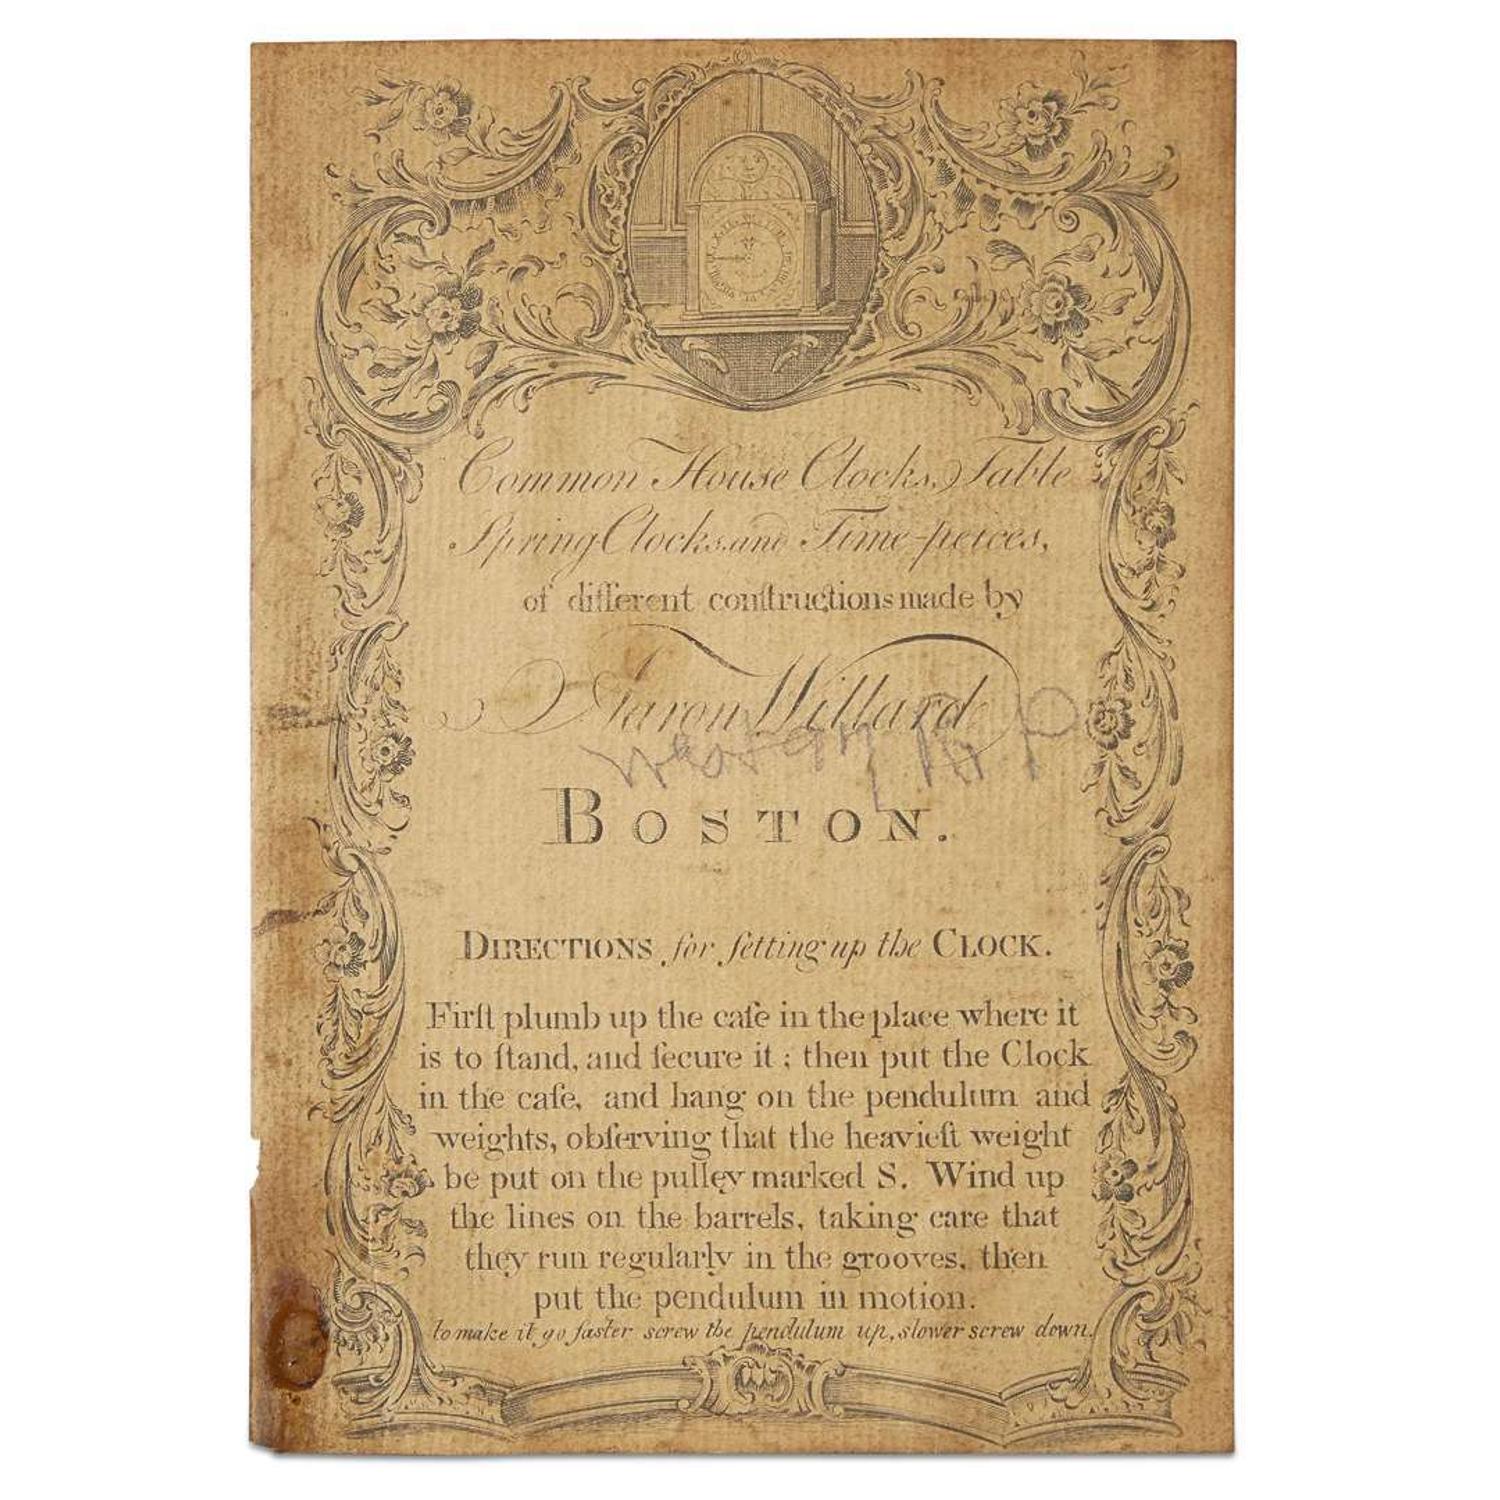 Common House Clocks, Table
Spring Clocks, and Time-peices,
of different conſtructions made by
Aaron Willard
BOSTON.
DIRECTIONS for ſetting up the CLOCK.
Firſt plumb up the caſe in the place where it
is to ſtand, and ſecure it; then put the Clock
in the caſe, and hang on the pendulum and
weights, obſerving that the heavieſt weight
be put on the pulley marked S. Wind up
the lines on the barrels, taking care that
they run regularly in the grooves, then
put the pendulum in motion.
to make it go faster screw the pendulum up, slower screw down.